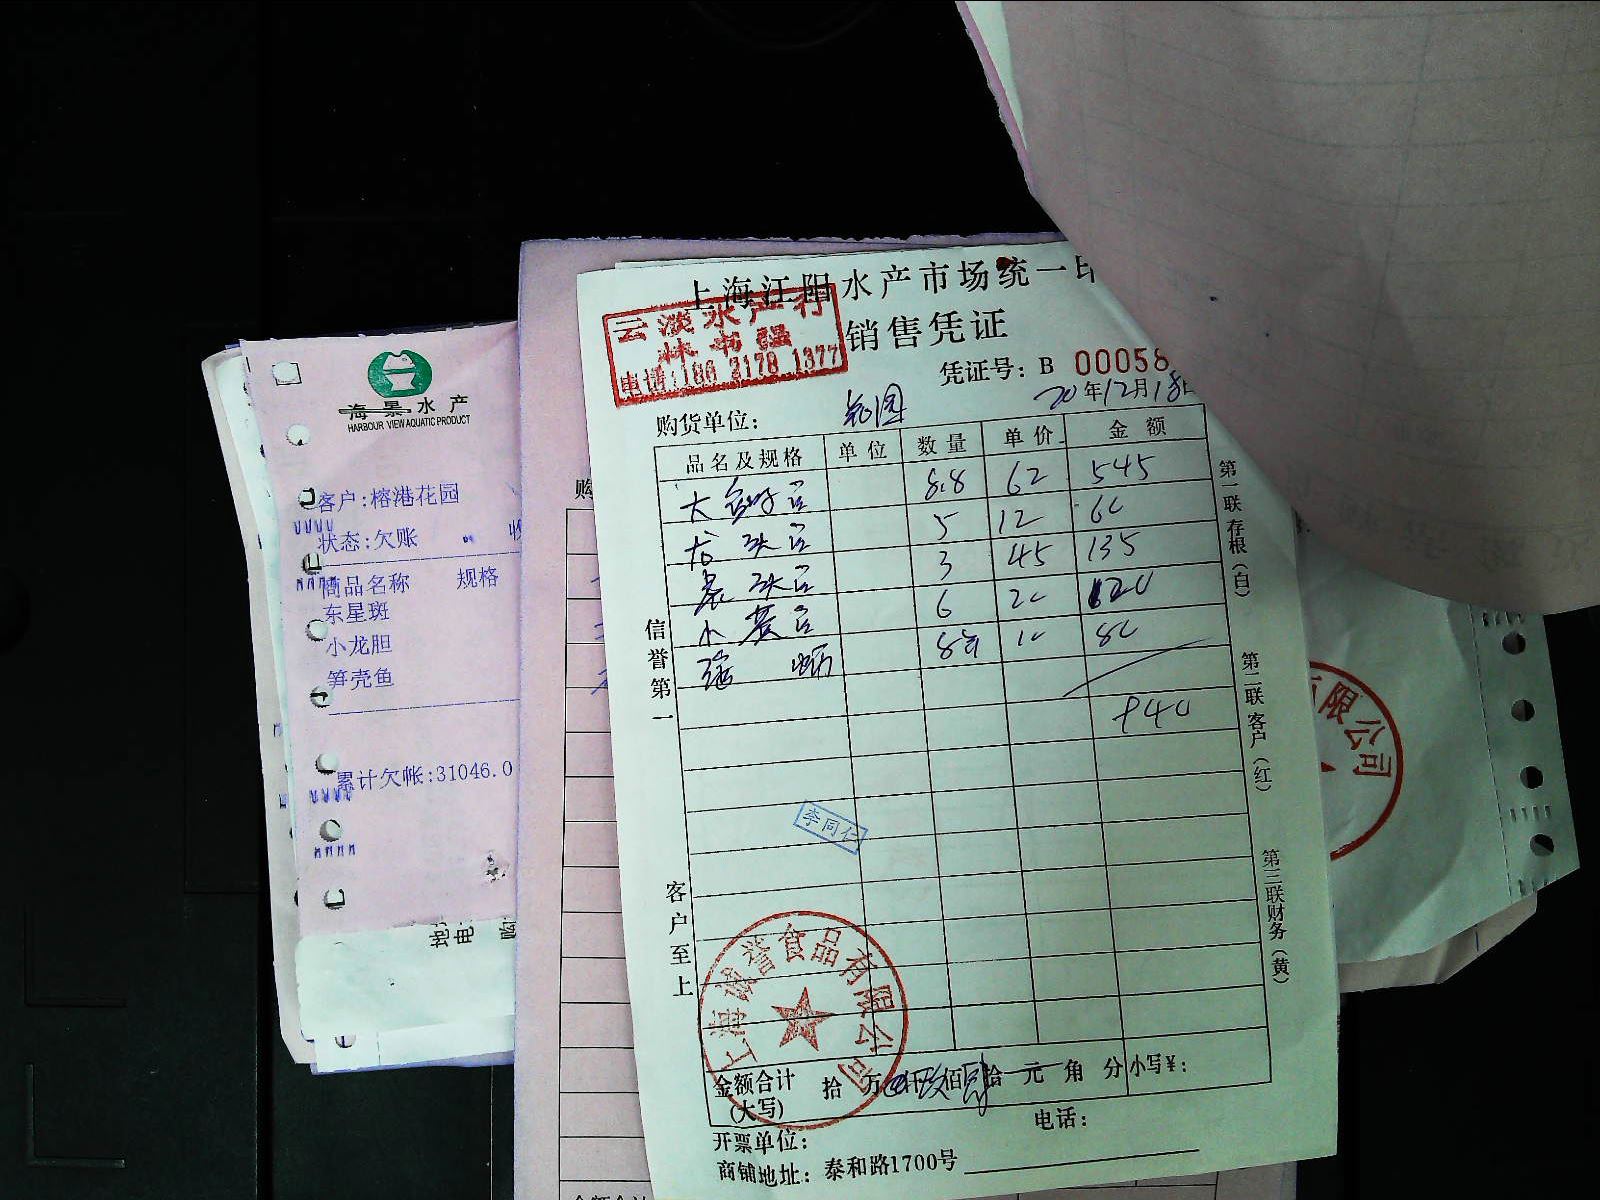 上海江阳水产市场统一印
销售凭证
云淡水产行
林书强
电话:186 2178 1377
凭证号: B 00058
20年12月18日
购货单位: 花园
品名及规格 单位 数量 单价 金额
大 8.8 62 545
龙头 5 12 60
3 45 135
小 6 20 120
8 10 80
940
信誉第一
客户至上
第一联存根(白)
第二联客户(红)
第三联财务(黄)
李同仁
上海诚誉食品有限公司
金额合计(大写) 拾 万 仟 玖佰 肆拾 元 角 分 小写¥:
开票单位: 电话:
商铺地址: 泰和路1700号
海景水产
HARBOUR VIEW AQUATIC PRODUCT
客户:榕港花园
状态:欠账 收
商品名称 规格
东星斑
小龙胆
笋壳鱼
累计欠帐:31046.0
购
有限公司